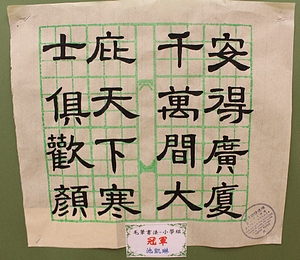 安得廣廈
千萬間大
庇天下寒
士俱歡顏
毛筆書法-小學組
冠軍
池凱琳